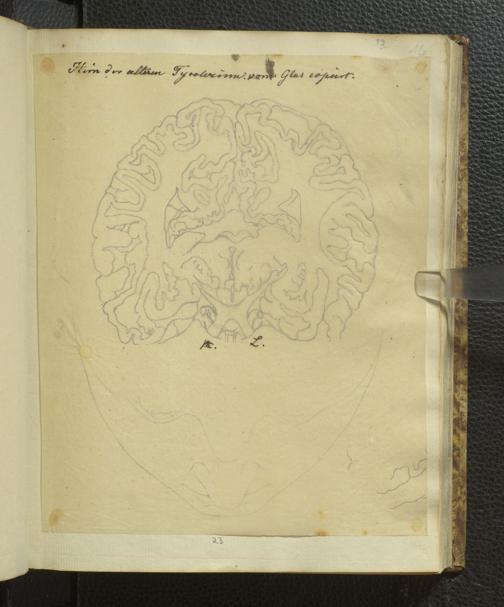 Hirn der älteren Tyrolerinn. vom Glas copiert.
R. L.
23